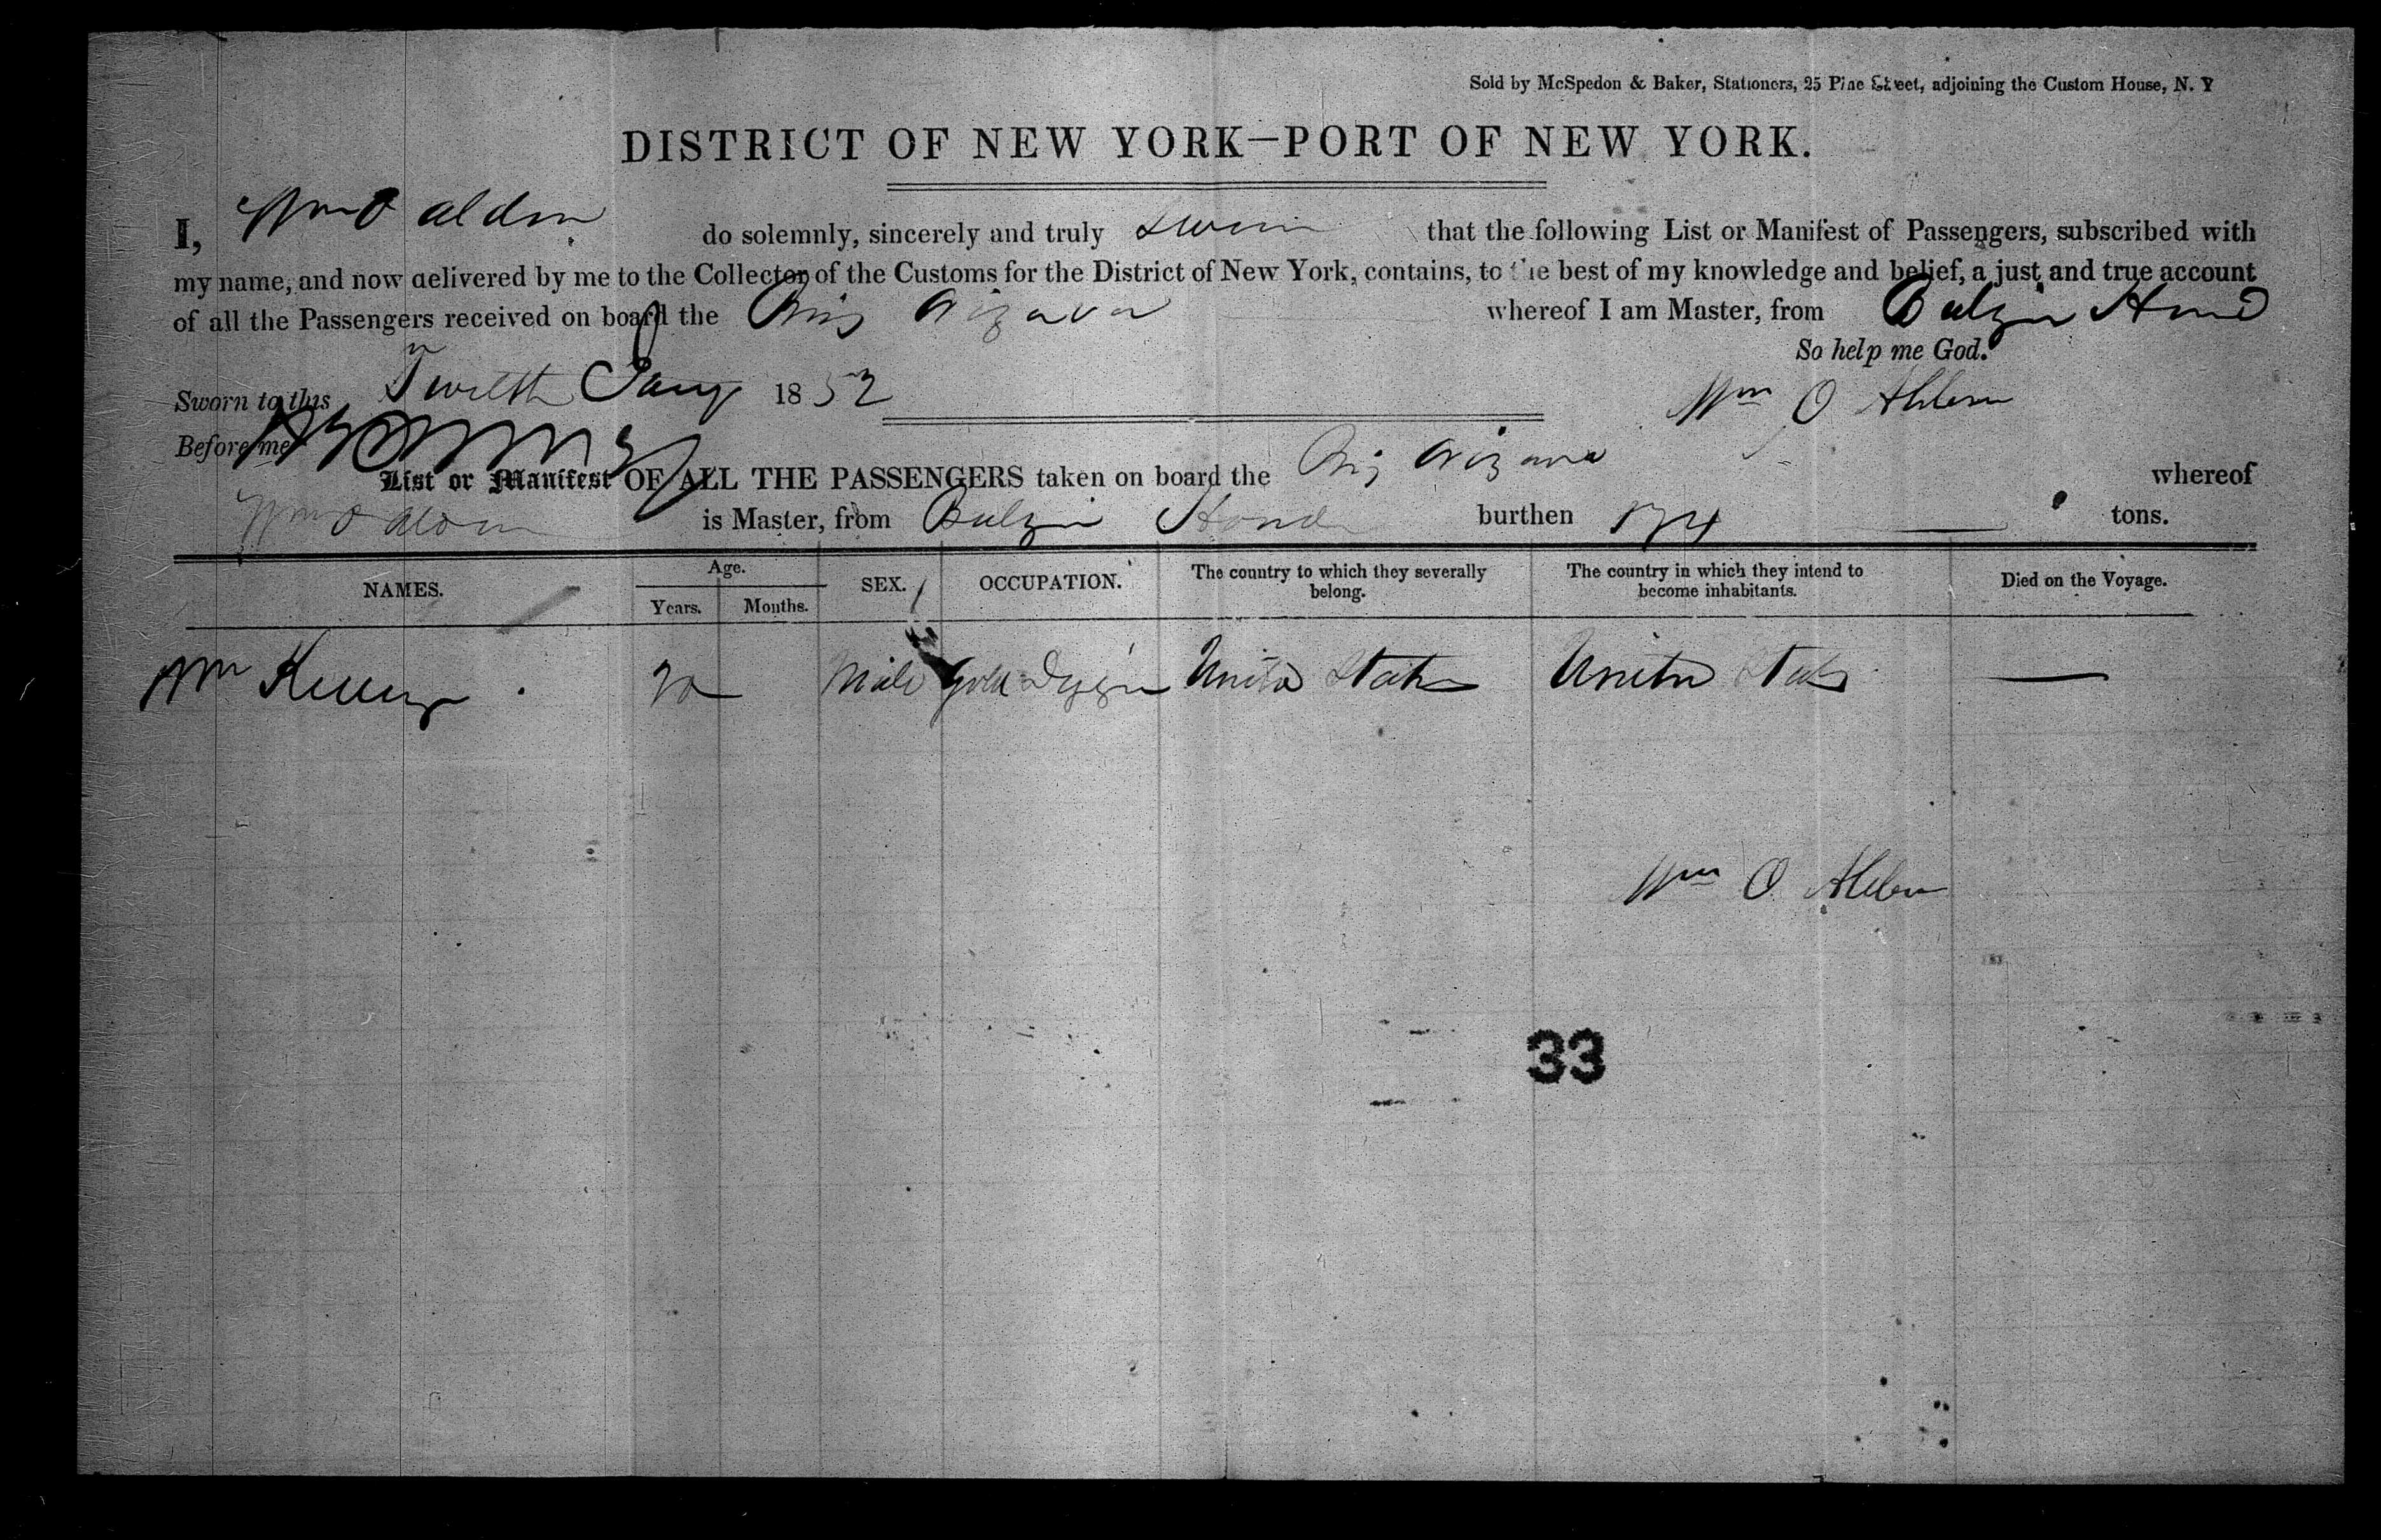 Sold by McSpedon & Baker, Stationers, 25 Pine Street, adjoining the Custom House, N. Y
DISTRICT OF NEW YORK—PORT OF NEW YORK.
I, Wm O Alden do solemnly, sincerely and truly swear that the following List or Manifest of Passengers, subscribed with
my name, and now delivered by me to the Collector of the Customs for the District of New York, contains, to the best of my knowledge and belief, a just and true account
of all the Passengers received on board the Brig whereof I am Master, from
So help me God.
Sworn to this Twelth Jany 1852
Wm O Alden
Before me
List or Manifest OF ALL THE PASSENGERS taken on board the Brig whereof
Wm O Alden is Master, from burthen 174 tons.
NAMES. Age. Years. Months. SEX. OCCUPATION. The country to which they severally belong. The country in which they intend to become inhabitants. Died on the Voyage.
Wm Kelley 20 Male Gold Digger United States United States —
Wm O Alden
33